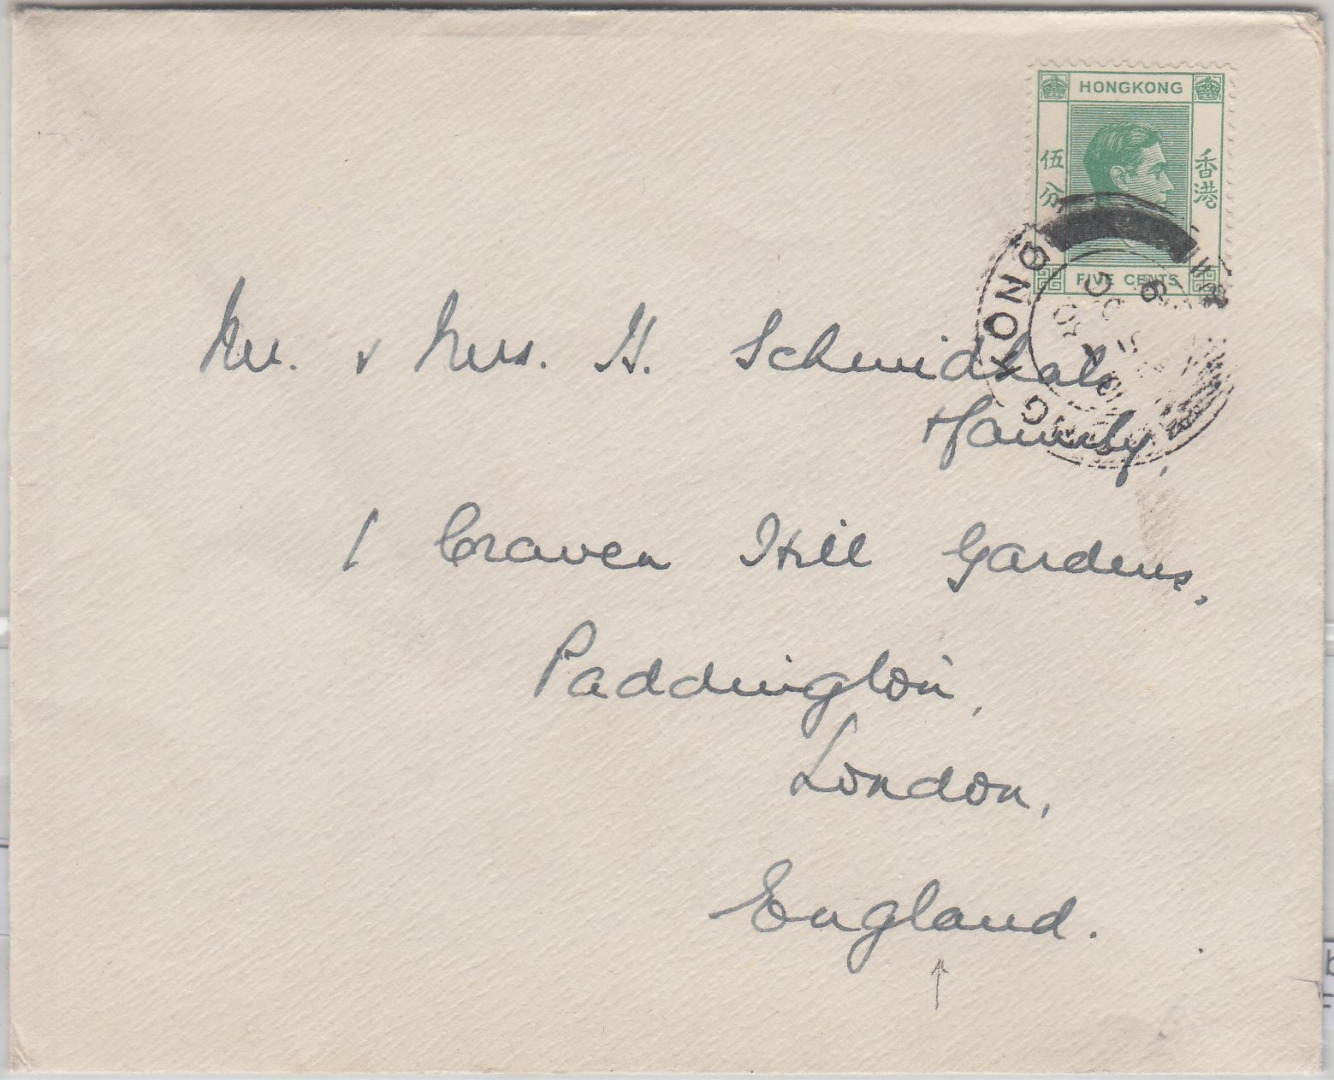 HONGKONG
伍分
香港
FIVE CENTS
HONG KONG
Mr. & Mrs. H. Schmidhals
& family,
1 Craven Hill Gardens,
Paddington,
London,
England.